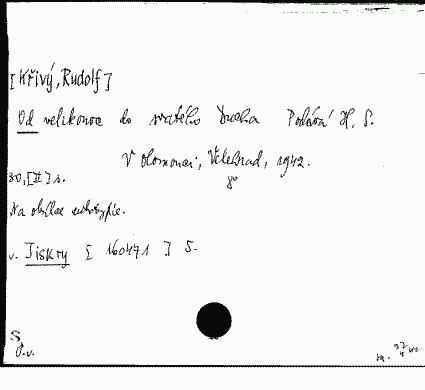 [Křivý, Rudolf]
Od velikonoc do svatého Ducha Podává H. S.
V Olomouci, Velehrad, 1942.
8°
30, [II] s.
Na obálce autotypie.
v. Jiskry [ 160471 ] 5.
S